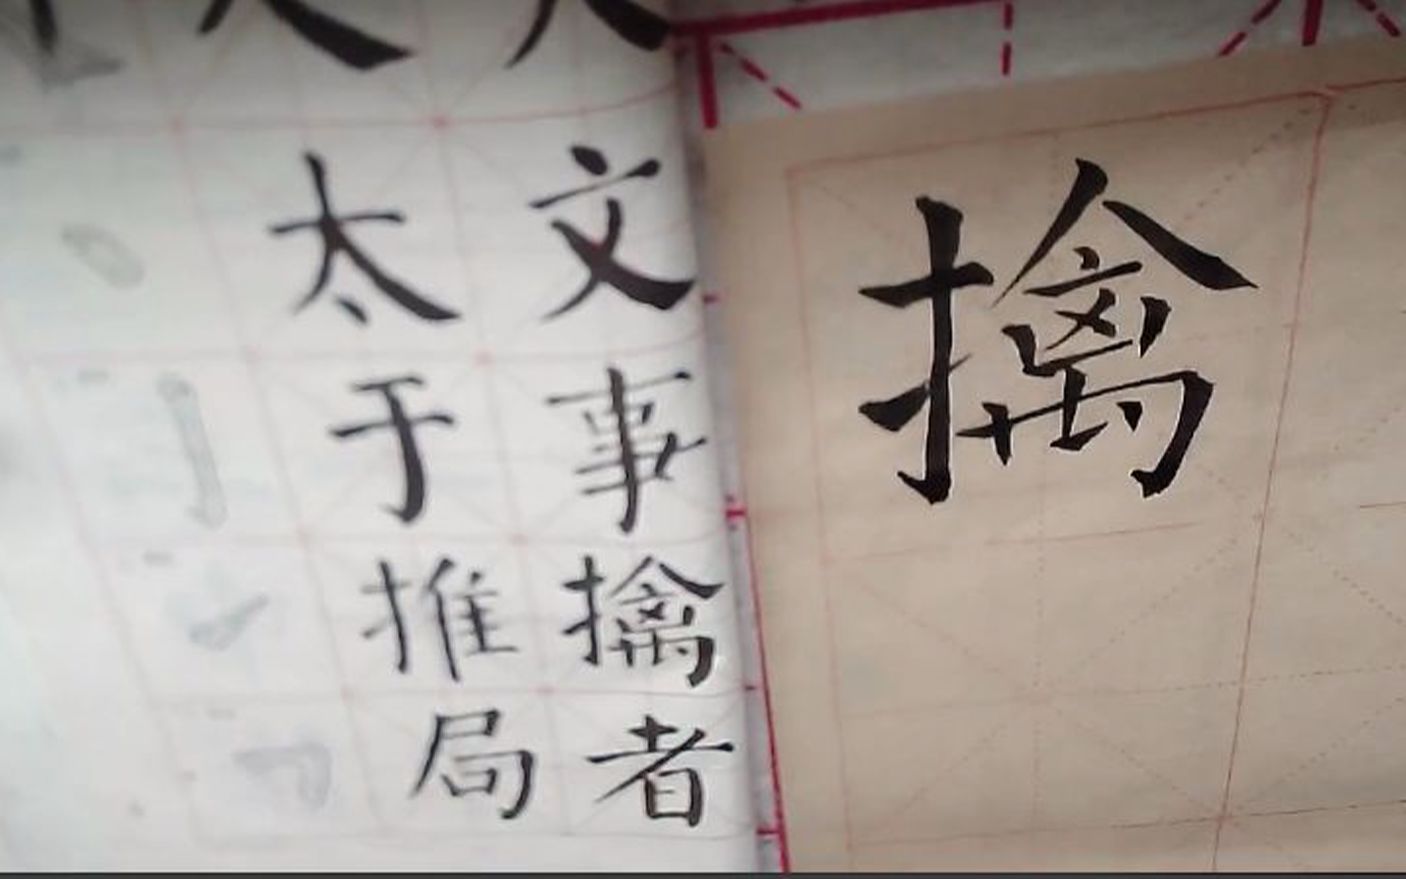 文事擒者
太于推局
擒